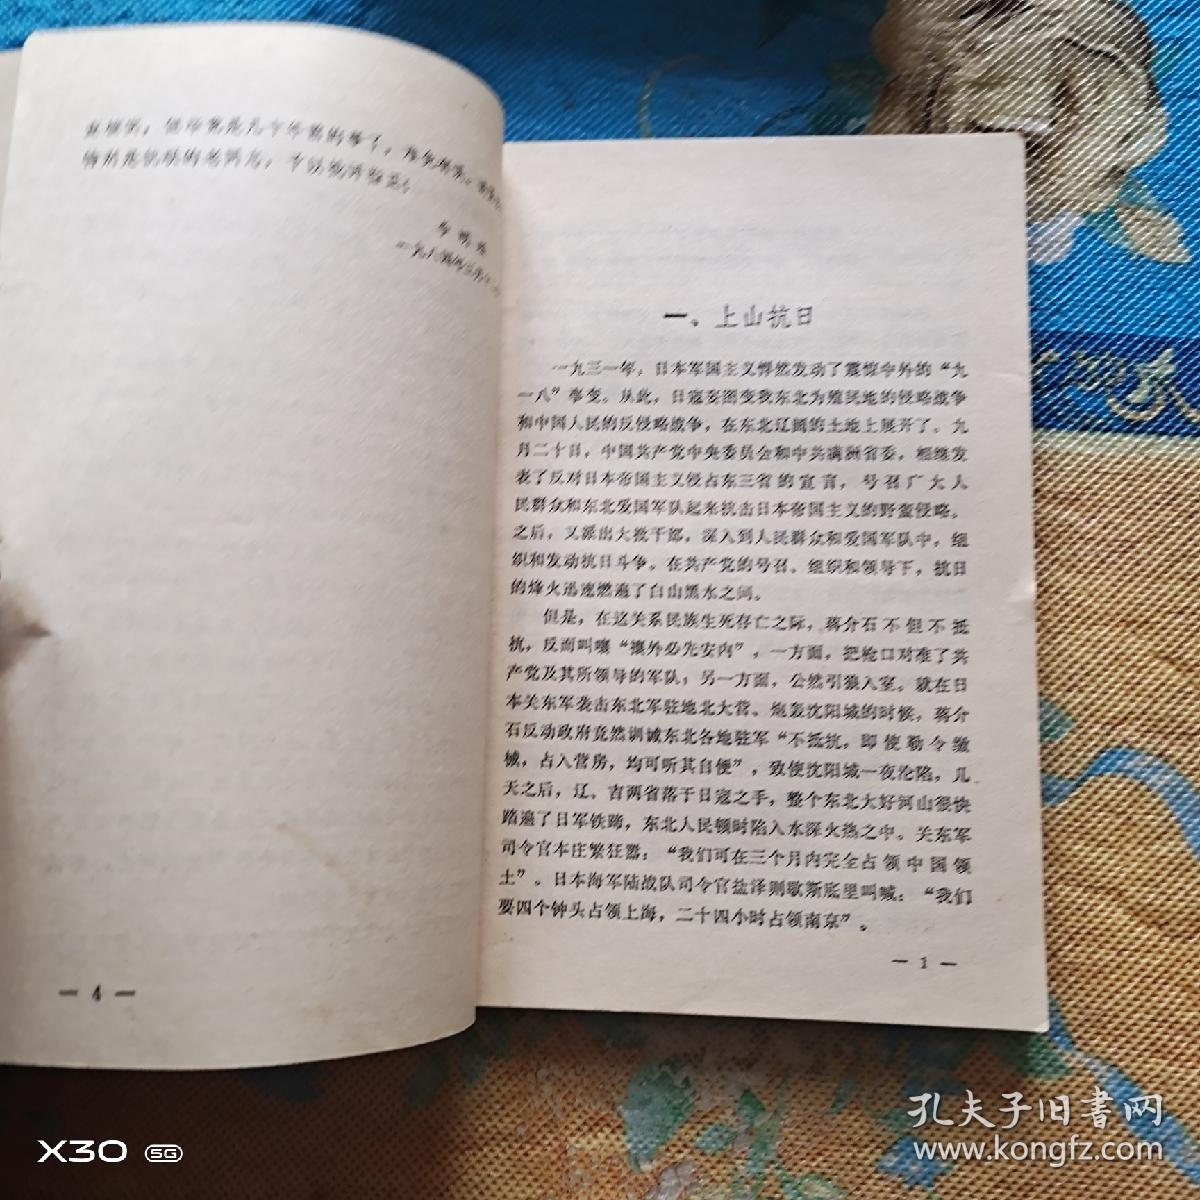 — 4 —
一、上山抗日
一九三一年，日本军国主义悍然发动了震惊中外的“九
一八”事变。从此，日寇妄图变我东北为殖民地的侵略战争
和中国人民的反侵略战争，在东北辽阔的土地上展开了。九
月二十日，中国共产党中央委员会和中共满洲省委，相继发
表了反对日本帝国主义侵占东三省的宣言，号召广大人
民群众和东北爱国军队起来抗击日本帝国主义的野蛮侵略。
之后，又派出大批干部，深入到人民群众和爱国军队中，组
织和发动抗日斗争。在共产党的号召、组织和领导下，抗日
的烽火迅速燃遍了白山黑水之间。
但是，在这关系民族生死存亡之际，蒋介石不但不抵
抗，反而叫嚷“攘外必先安内”，一方面，把枪口对准了共
产党及其所领导的军队；另一方面，公然引狼入室。就在日
本关东军袭击东北军驻地北大营、炮轰沈阳城的时候，蒋介
石反动政府竟然训诫东北各地驻军“不抵抗，即使勒令缴
械，占入营房，均可听其自便”，致使沈阳城一夜沦陷，几
天之后，辽、吉两省落于日寇之手，整个东北大好河山很快
踏遍了日军铁蹄，东北人民顿时陷入水深火热之中。关东军
司令官本庄繁狂嚣：“我们可在三个月内完全占领中国领
土”。日本海军陆战队司令官盐泽则歇斯底里叫喊：“我们
要四个钟头占领上海，二十四小时占领南京”。
— 1 —
X30 5G
孔夫子旧書网
www.kongfz.com